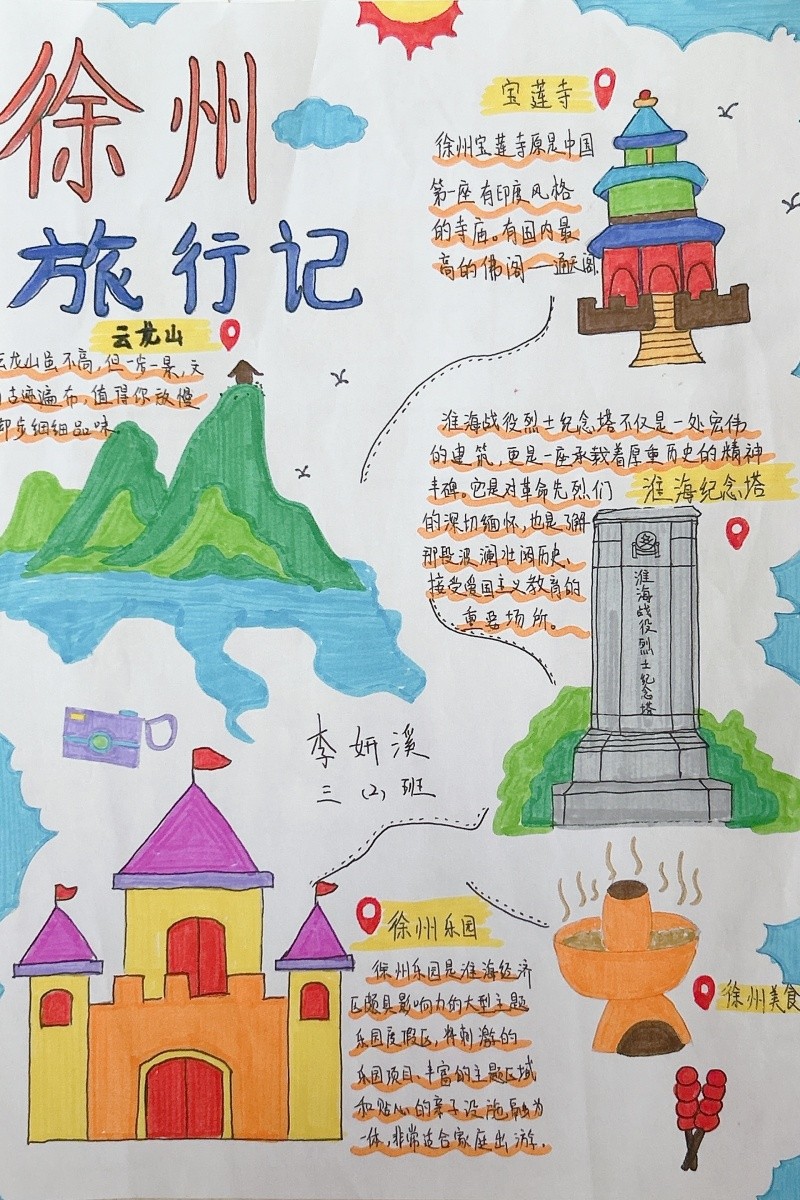 徐州
旅行记
云龙山
云龙山虽不高,但一步一景,文
古迹遍布,值得你放慢
脚步细细品味
宝莲寺
徐州宝莲寺原是中国
第一座有印度风格
的寺庙。有国内最
高的佛阁——通天阁
淮海战役烈士纪念塔不仅是一处宏伟
的建筑,更是一座承载着厚重历史的精神
丰碑。它是对革命先烈们
淮海纪念塔
的深切缅怀,也是了解
那段波澜壮阔历史、
接受爱国主义教育的
重要场所。
淮海战役烈士纪念塔
李妍溪
三(2)班
徐州乐园
徐州乐园是淮海经济
区颇具影响力的大型主题
乐园度假区,将刺激的
乐园项目、丰富的主题区域
和贴心的亲子设施融为
一体,非常适合家庭出游.
徐州美食